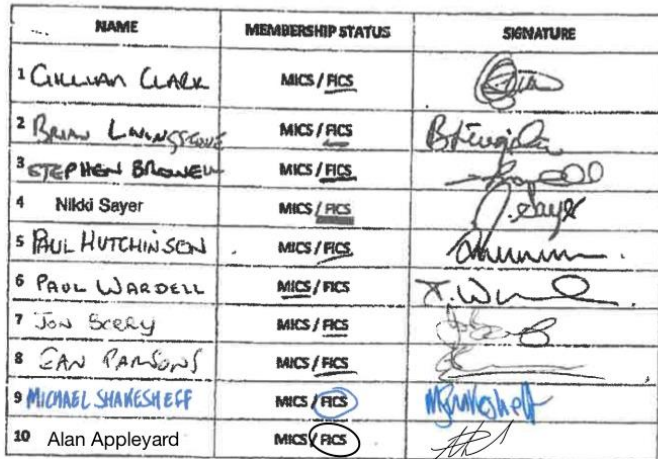 NAME MEMBERSHIP STATUS SIGNATURE
1 GILLIAN CLARK MICS / FICS
2 BRIAN LIVINGSTONE MICS / FICS
3 STEPHEN BROWELL MICS / FICS
4 Nikki Sayer MICS / FICS
5 PAUL HUTCHINSON MICS / FICS
6 PAUL WARDELL MICS / FICS
7 JON SCERY MICS / FICS
8 IAN PARSONS MICS / FICS
9 MICHAEL SHAKESHEFF MICS / FICS
10 Alan Appleyard MICS / FICS